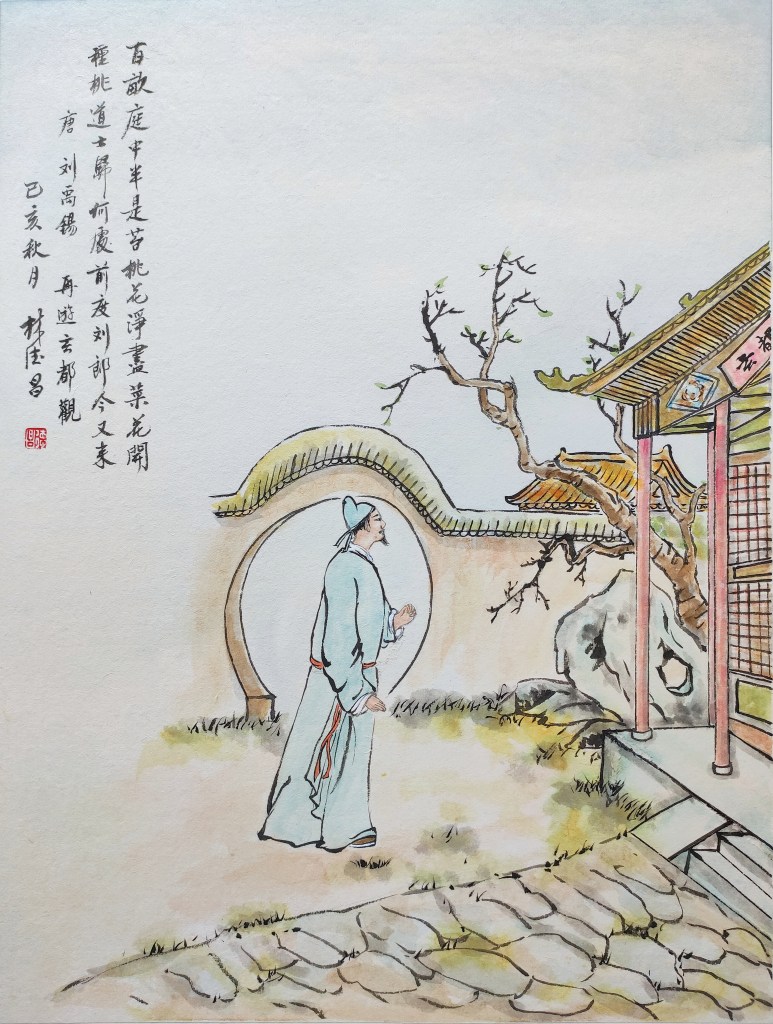 百畝庭中半是苔桃花淨盡菜花開
種桃道士歸何處前度刘郎今又来
唐 刘禹錫 再遊玄都觀
己亥秋月 林德昌